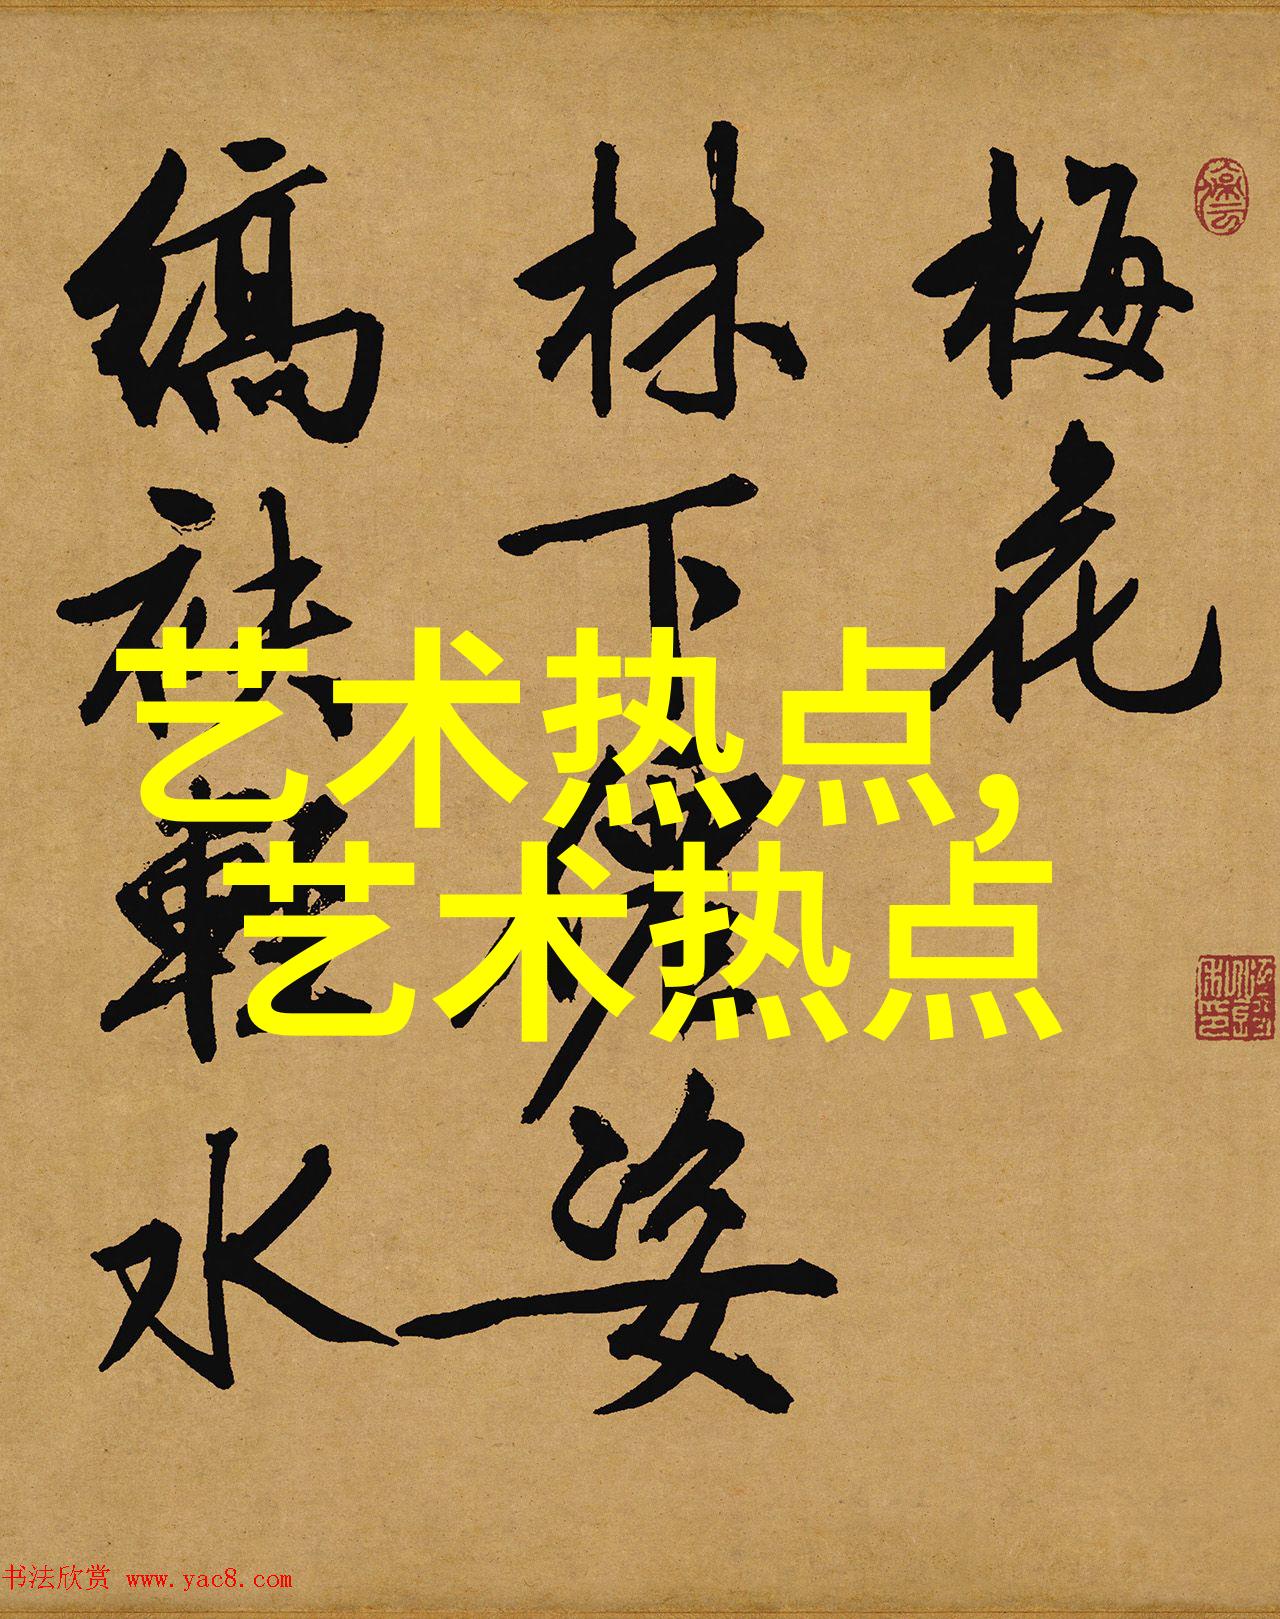 梅花
林下仙姿
缟袂轻水
艺术热点，
艺术热点
书法欣赏 www.yac8.com